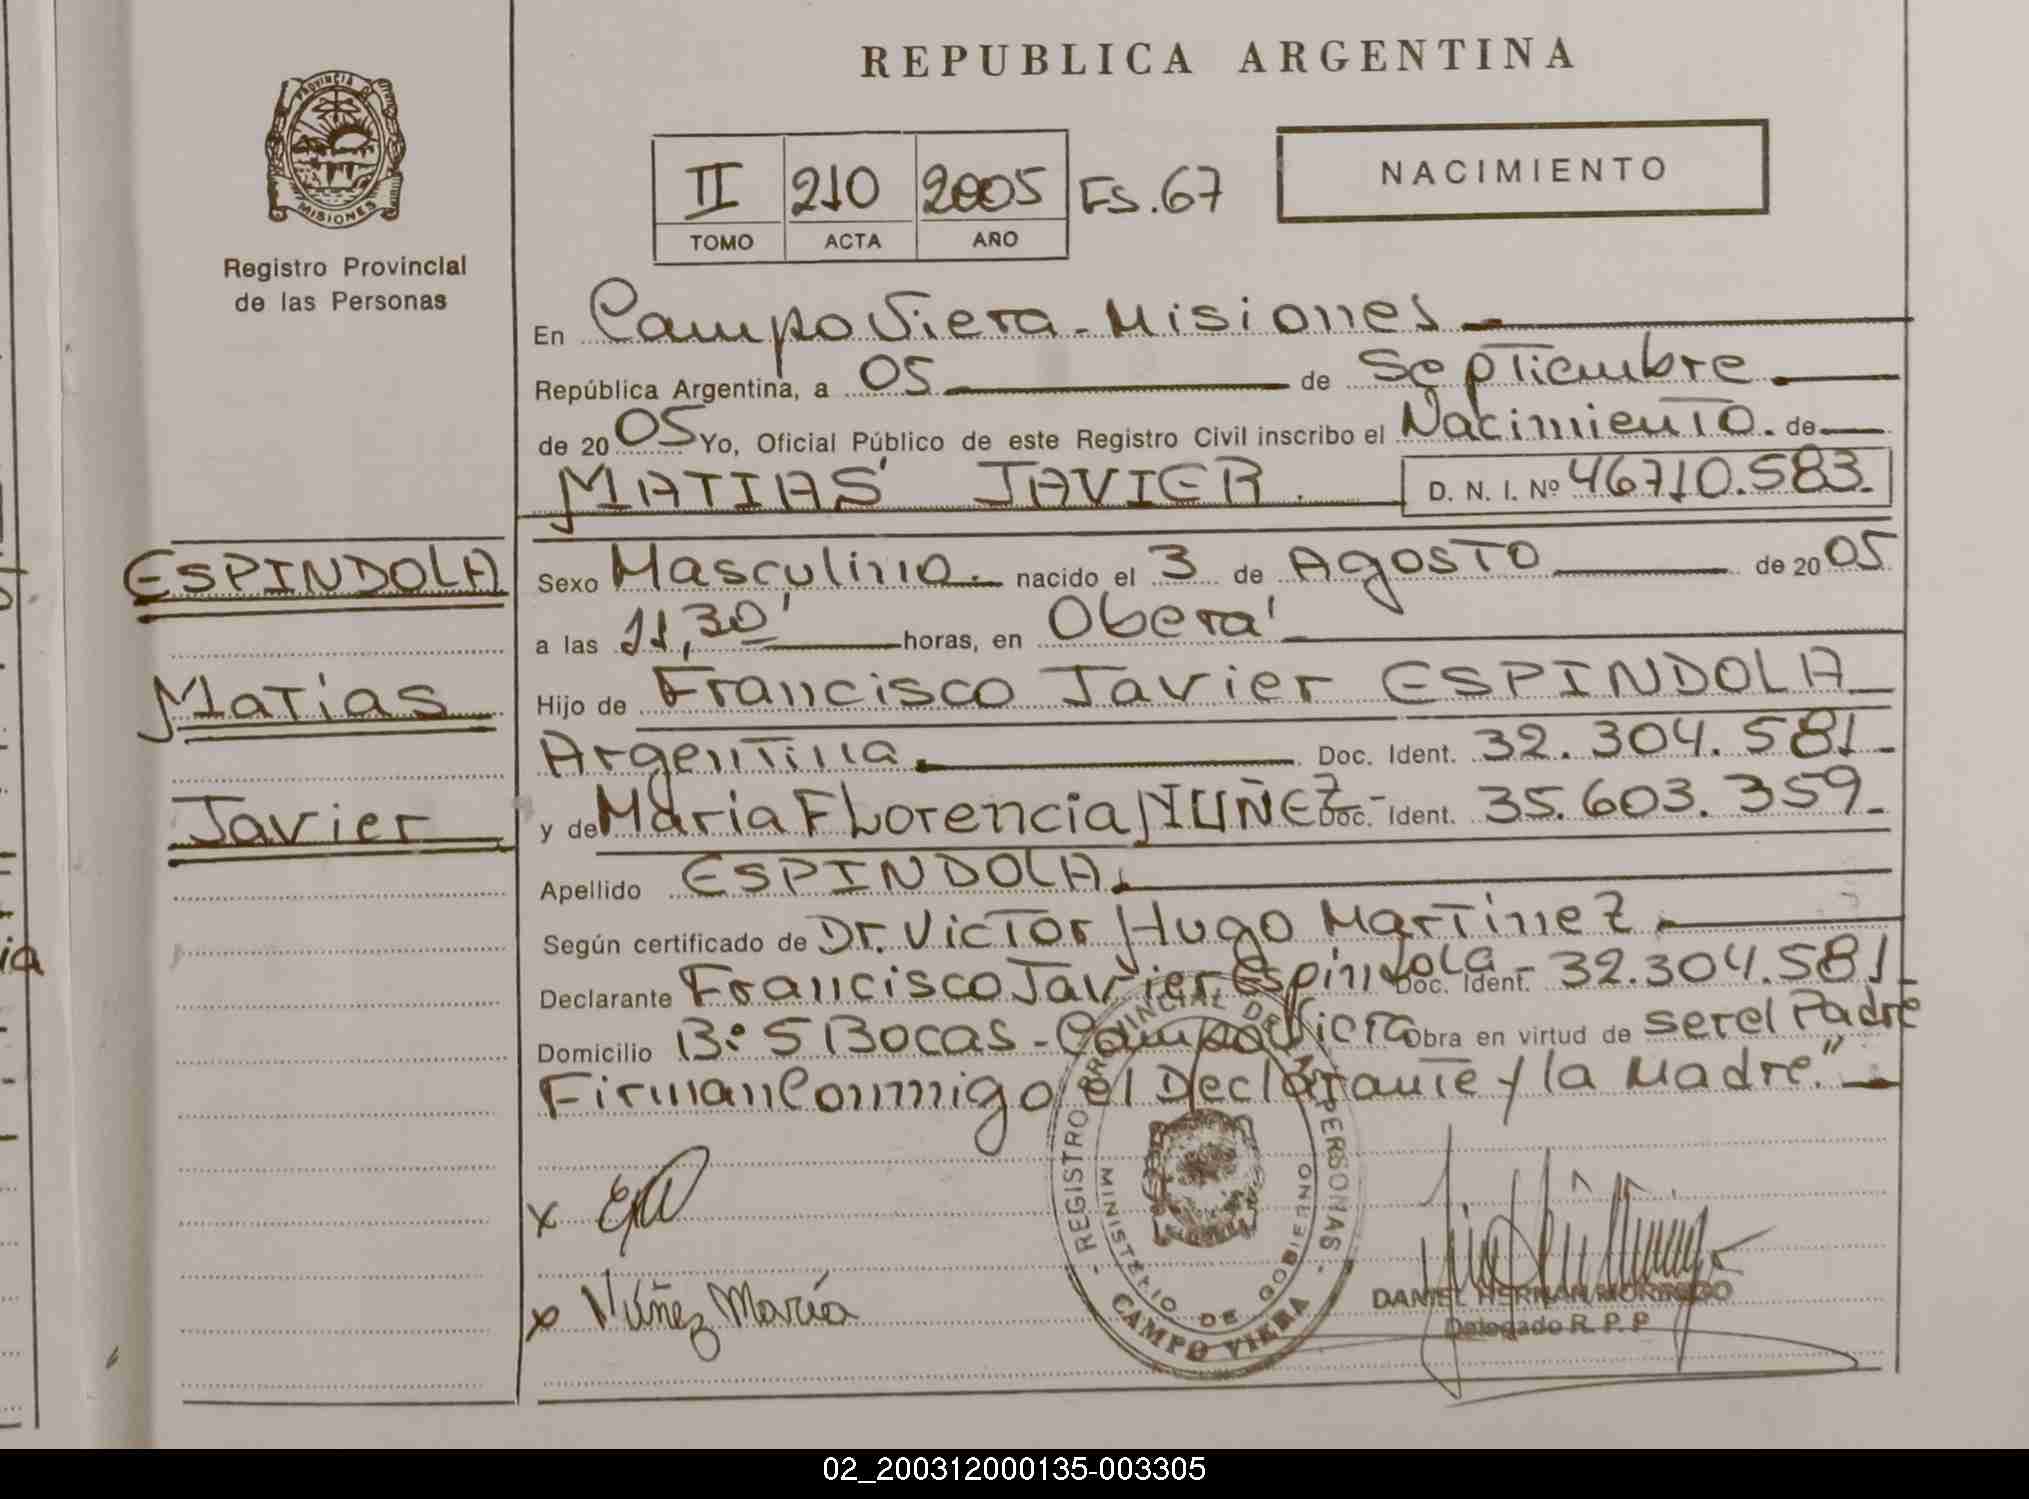 REPUBLICA ARGENTINA
PROVINCIA DE
MISIONES
Registro Provincial
de las Personas
II 210 2005 FS.67
TOMO ACTA AÑO
NACIMIENTO
En Campo Viera - Misiones
República Argentina, a 05 de Septiembre
de 2005 Yo, Oficial Público de este Registro Civil inscribo el Nacimiento. de
MATIAS JAVIER. D. N. I. Nº 46710.583.
ESPINDOLA
Matias
Javier
Sexo Masculino. nacido el 3 de Agosto de 2005
a las 11,30' horas, en Obera'
Hijo de Francisco Javier ESPINDOLA
Argentina. Doc. Ident. 32.304.581-
y de Maria Florencia NUÑEZ- Doc. Ident. 35.603.359-
Apellido ESPINDOLA.
Según certificado de Dr. Victor Hugo Martinez.
Declarante Francisco Javier Espindola- Doc. Ident. 32.304.581-
Domicilio B: 5 Bocas - Campo Viera Obra en virtud de ser el Padre
Firman Conmigo el Declarante y la Madre."
x
x Núñez María
REGISTRO PROVINCIAL DE LAS PERSONAS
MINISTERIO DE GOBIERNO
CAMPO VIERA
DANIEL HERNAN
Delegado R. P. P
02_200312000135-003305